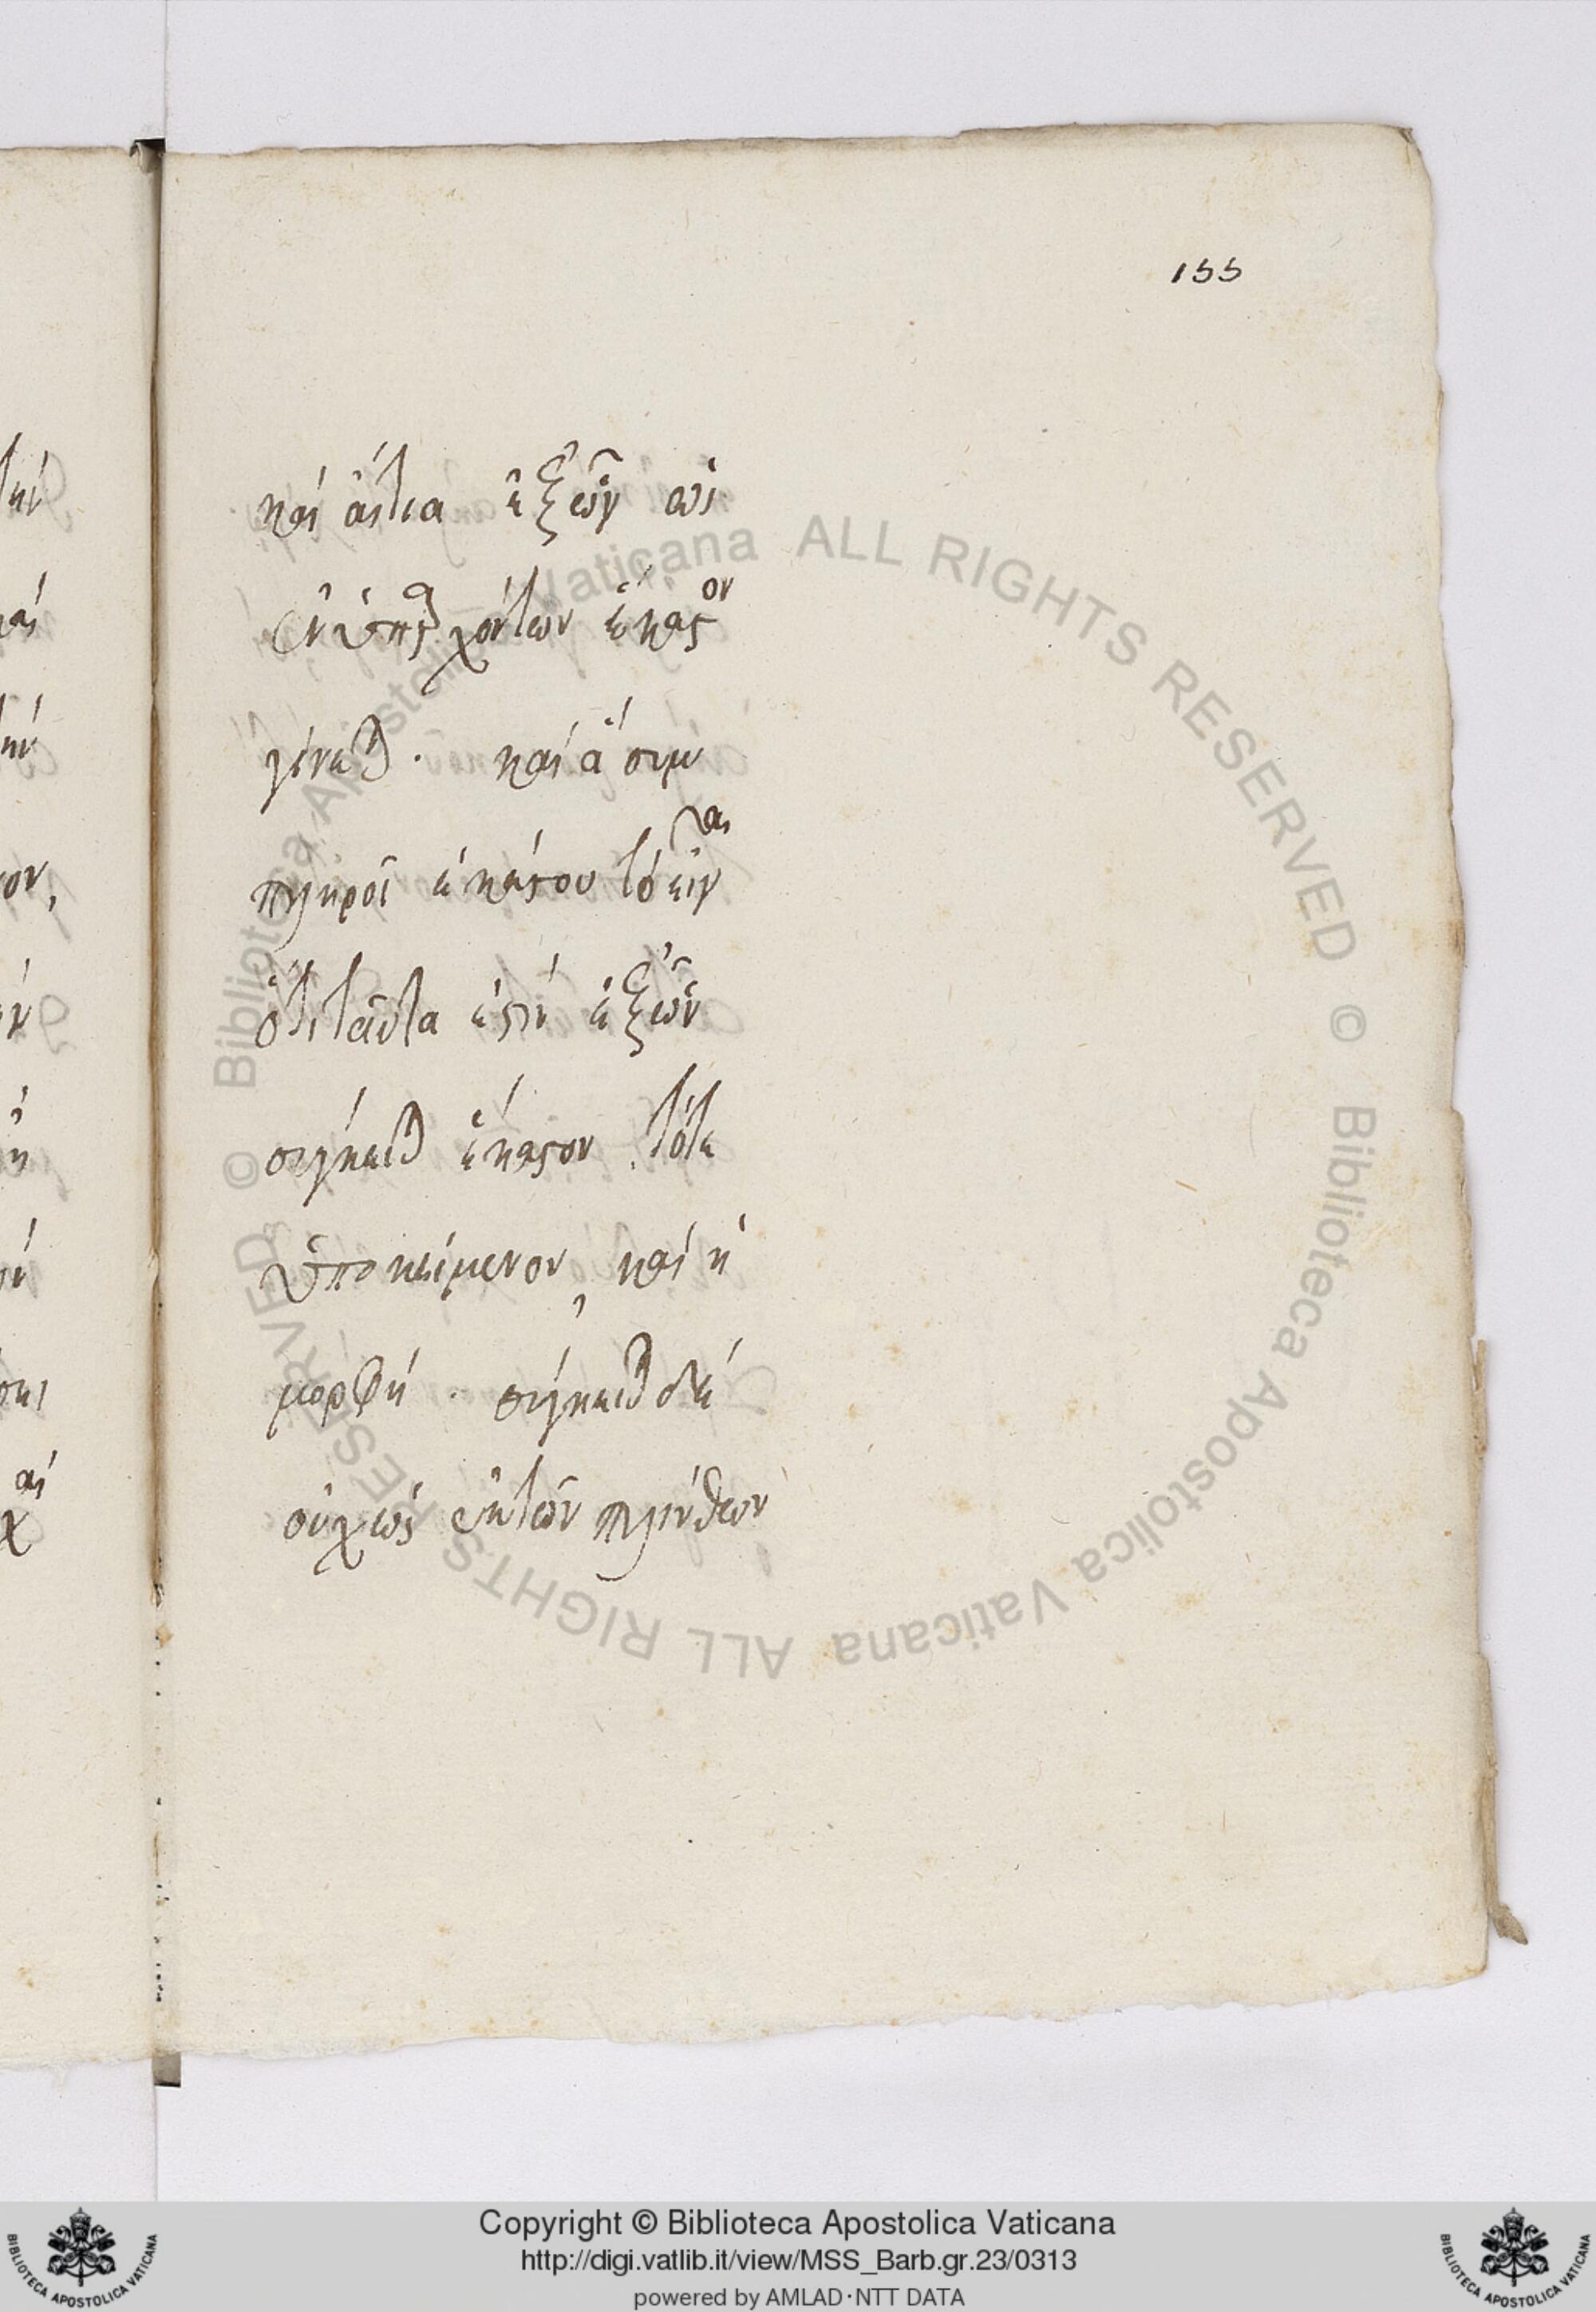 155
καὶ αἴτια ἐξ ὧν ὡς
ἐνυπαρχόντων ἕκαστον
γίνεται. καὶ ἃ συμ
πληροῖ ἑκάστου τὸ εἶναι
ὅτι ταῦτά ἐστιν ἐξ ὧν
σύγκειται ἕκαστον. τό τε
ὑποκείμενον, καὶ ἡ
μορφή. σύγκειται δὲ
οὐχ ὡς ἐκ τῶν πλίνθων
© Biblioteca Apostolica Vaticana ALL RIGHTS RESERVED © Biblioteca Apostolica Vaticana ALL RIGHTS RESERVED
Copyright © Biblioteca Apostolica Vaticana
http://digi.vatlib.it/view/MSS_Barb.gr.23/0313
powered by AMLAD·NTT DATA
BIBLIOTECA APOSTOLICA VATICANA
BIBLIOTECA APOSTOLICA VATICANA